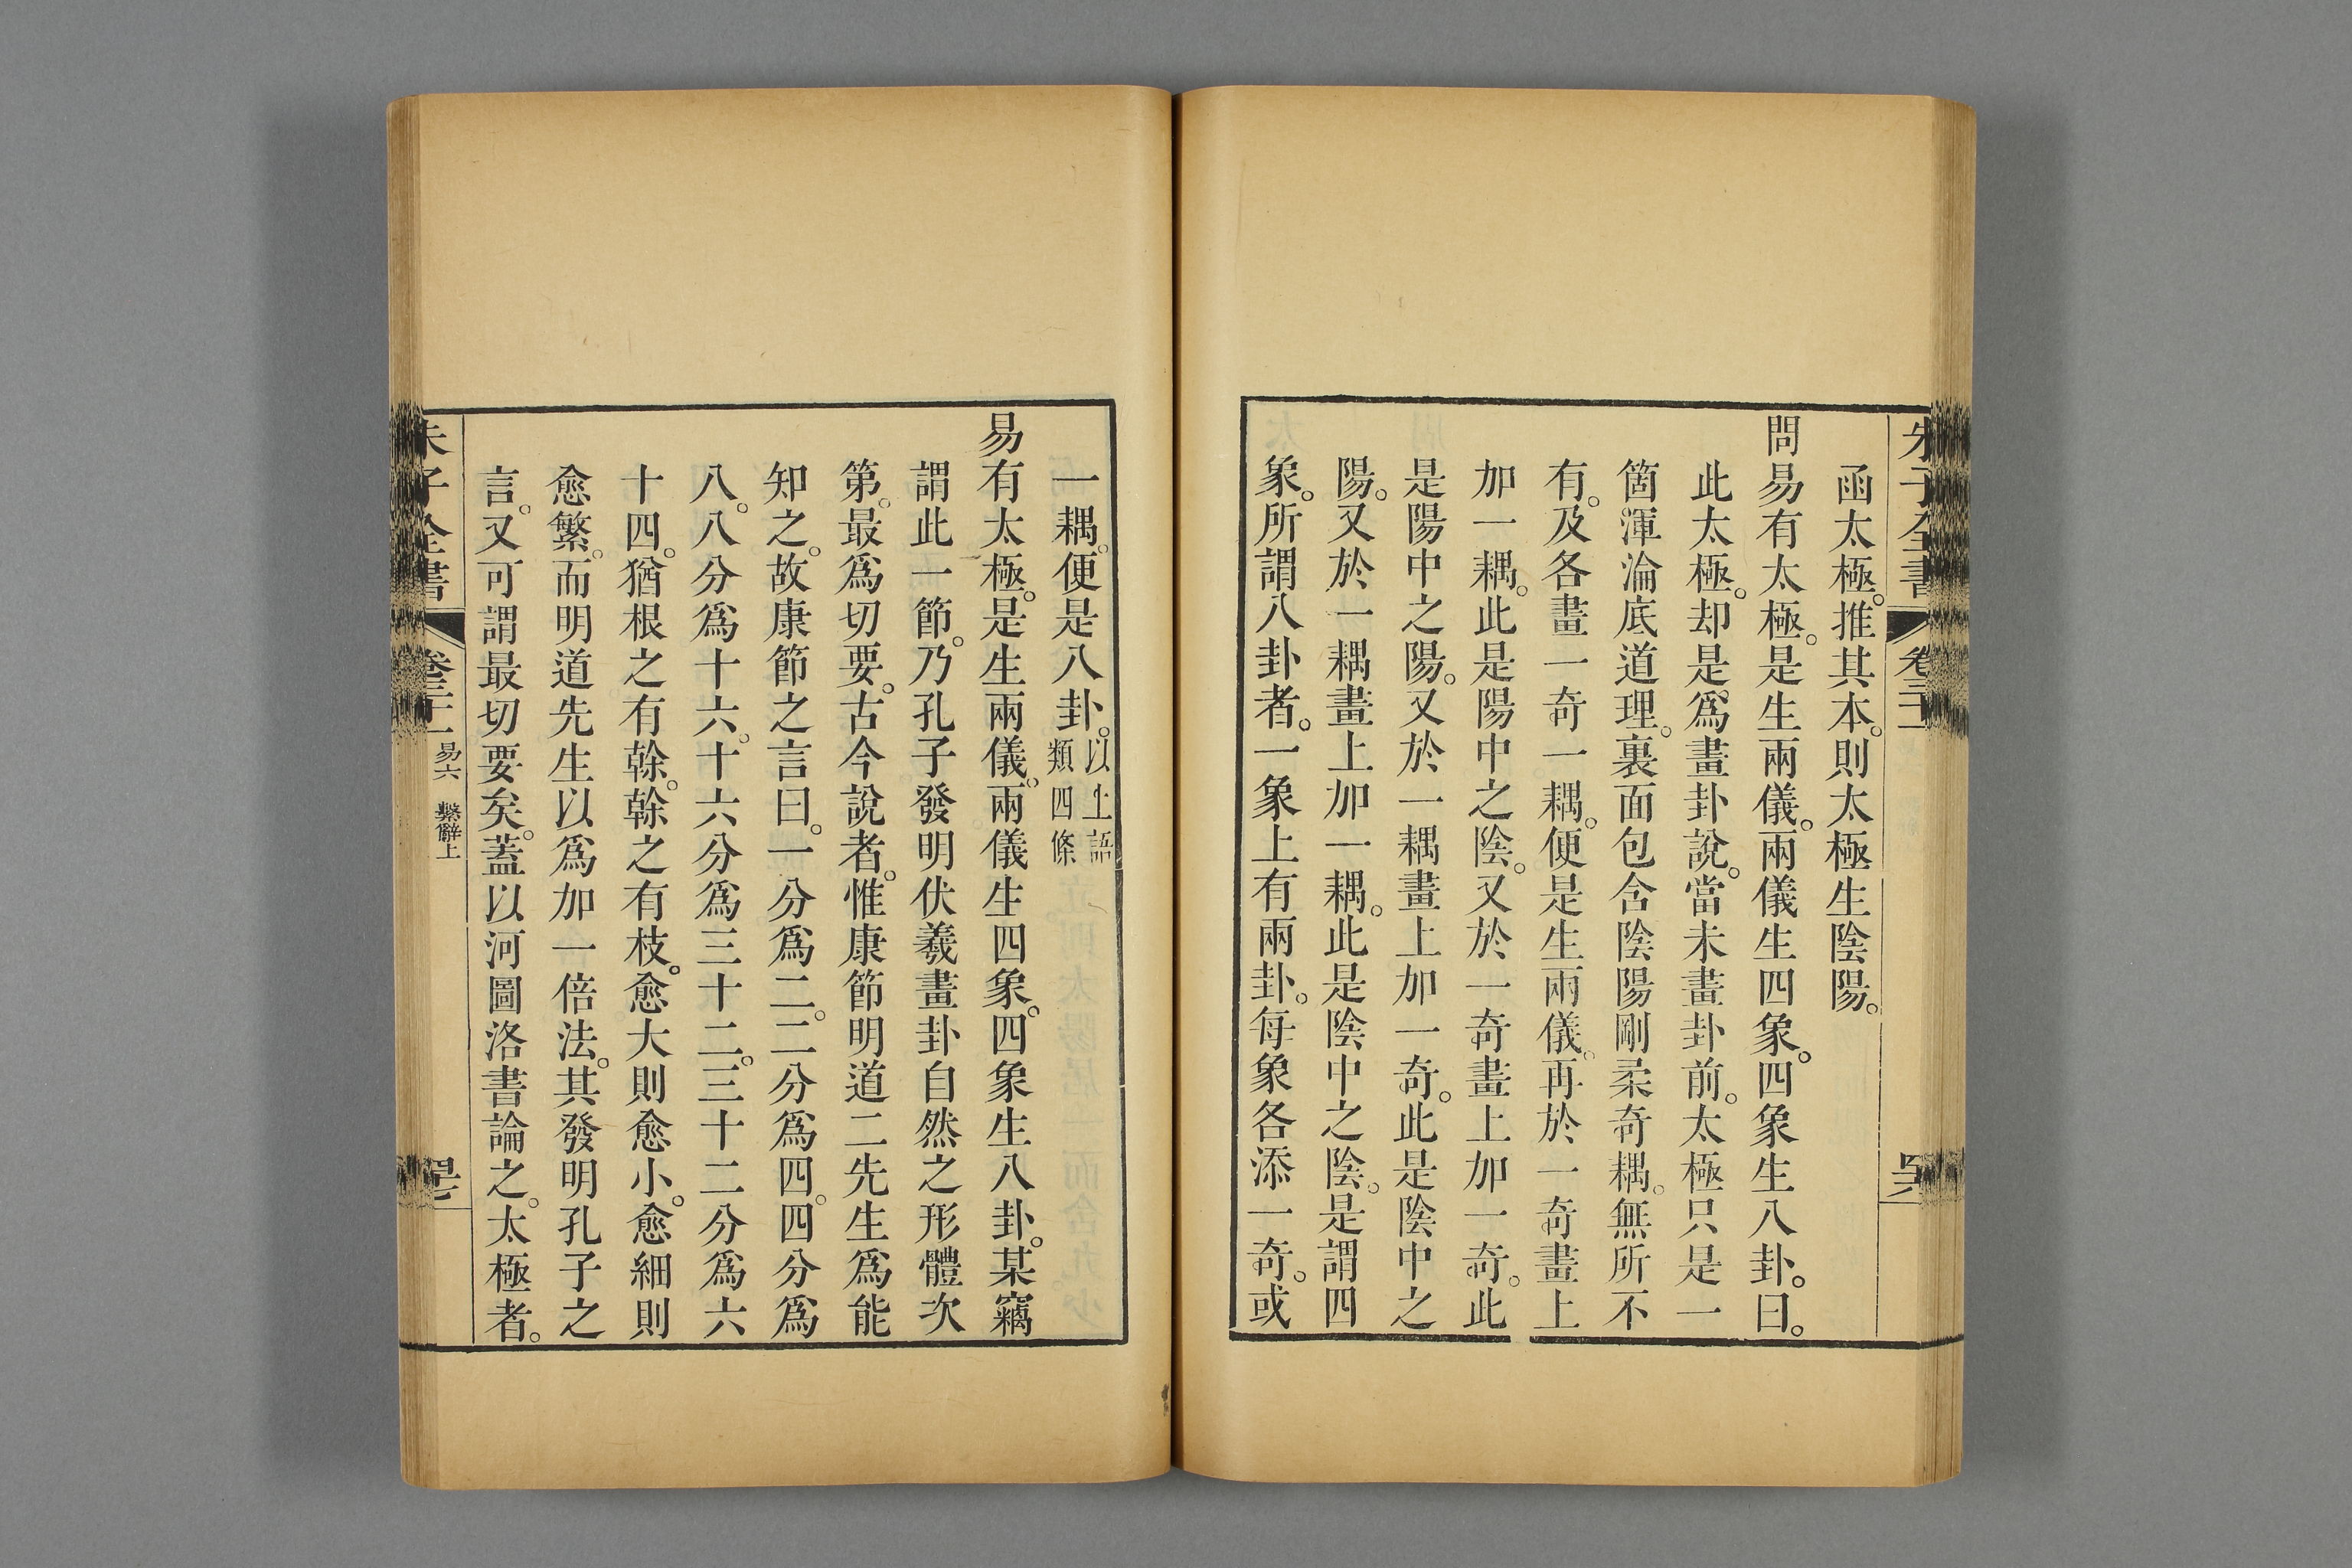 函太極。推其本。則太極生陰陽。
問易有太極。是生兩儀。兩儀生四象。四象生八卦。曰。
此太極。却是爲畫卦說。當未畫卦前。太極只是一
箇渾淪底道理。裏面包含陰陽剛柔奇耦。無所不
有。及各畫一奇一耦。便是生兩儀。再於一奇畫上
加一耦。此是陽中之陰。又於一奇畫上加一奇。此
是陽中之陽。又於一耦畫上加一奇。此是陰中之
陽。又於一耦畫上加一耦。此是陰中之陰。是謂四
象。所謂八卦者。一象上有兩卦。每象各添一奇。或
一耦。便是八卦。以上語類四條
易有太極。是生兩儀。兩儀生四象。四象生八卦。某竊
謂此一節。乃孔子發明伏羲畫卦自然之形體次
第。最爲切要。古今說者。惟康節明道二先生爲能
知之。故康節之言曰。一分爲二。二分爲四。四分爲
八。八分爲十六。十六分爲三十二。三十二分爲六
十四。猶根之有榦。榦之有枝。愈大則愈小。愈細則
愈繁。而明道先生以爲加一倍法。其發明孔子之
言。又可謂最切要矣。蓋以河圖洛書論之。太極者。
朱子全書
易六 繫辭上